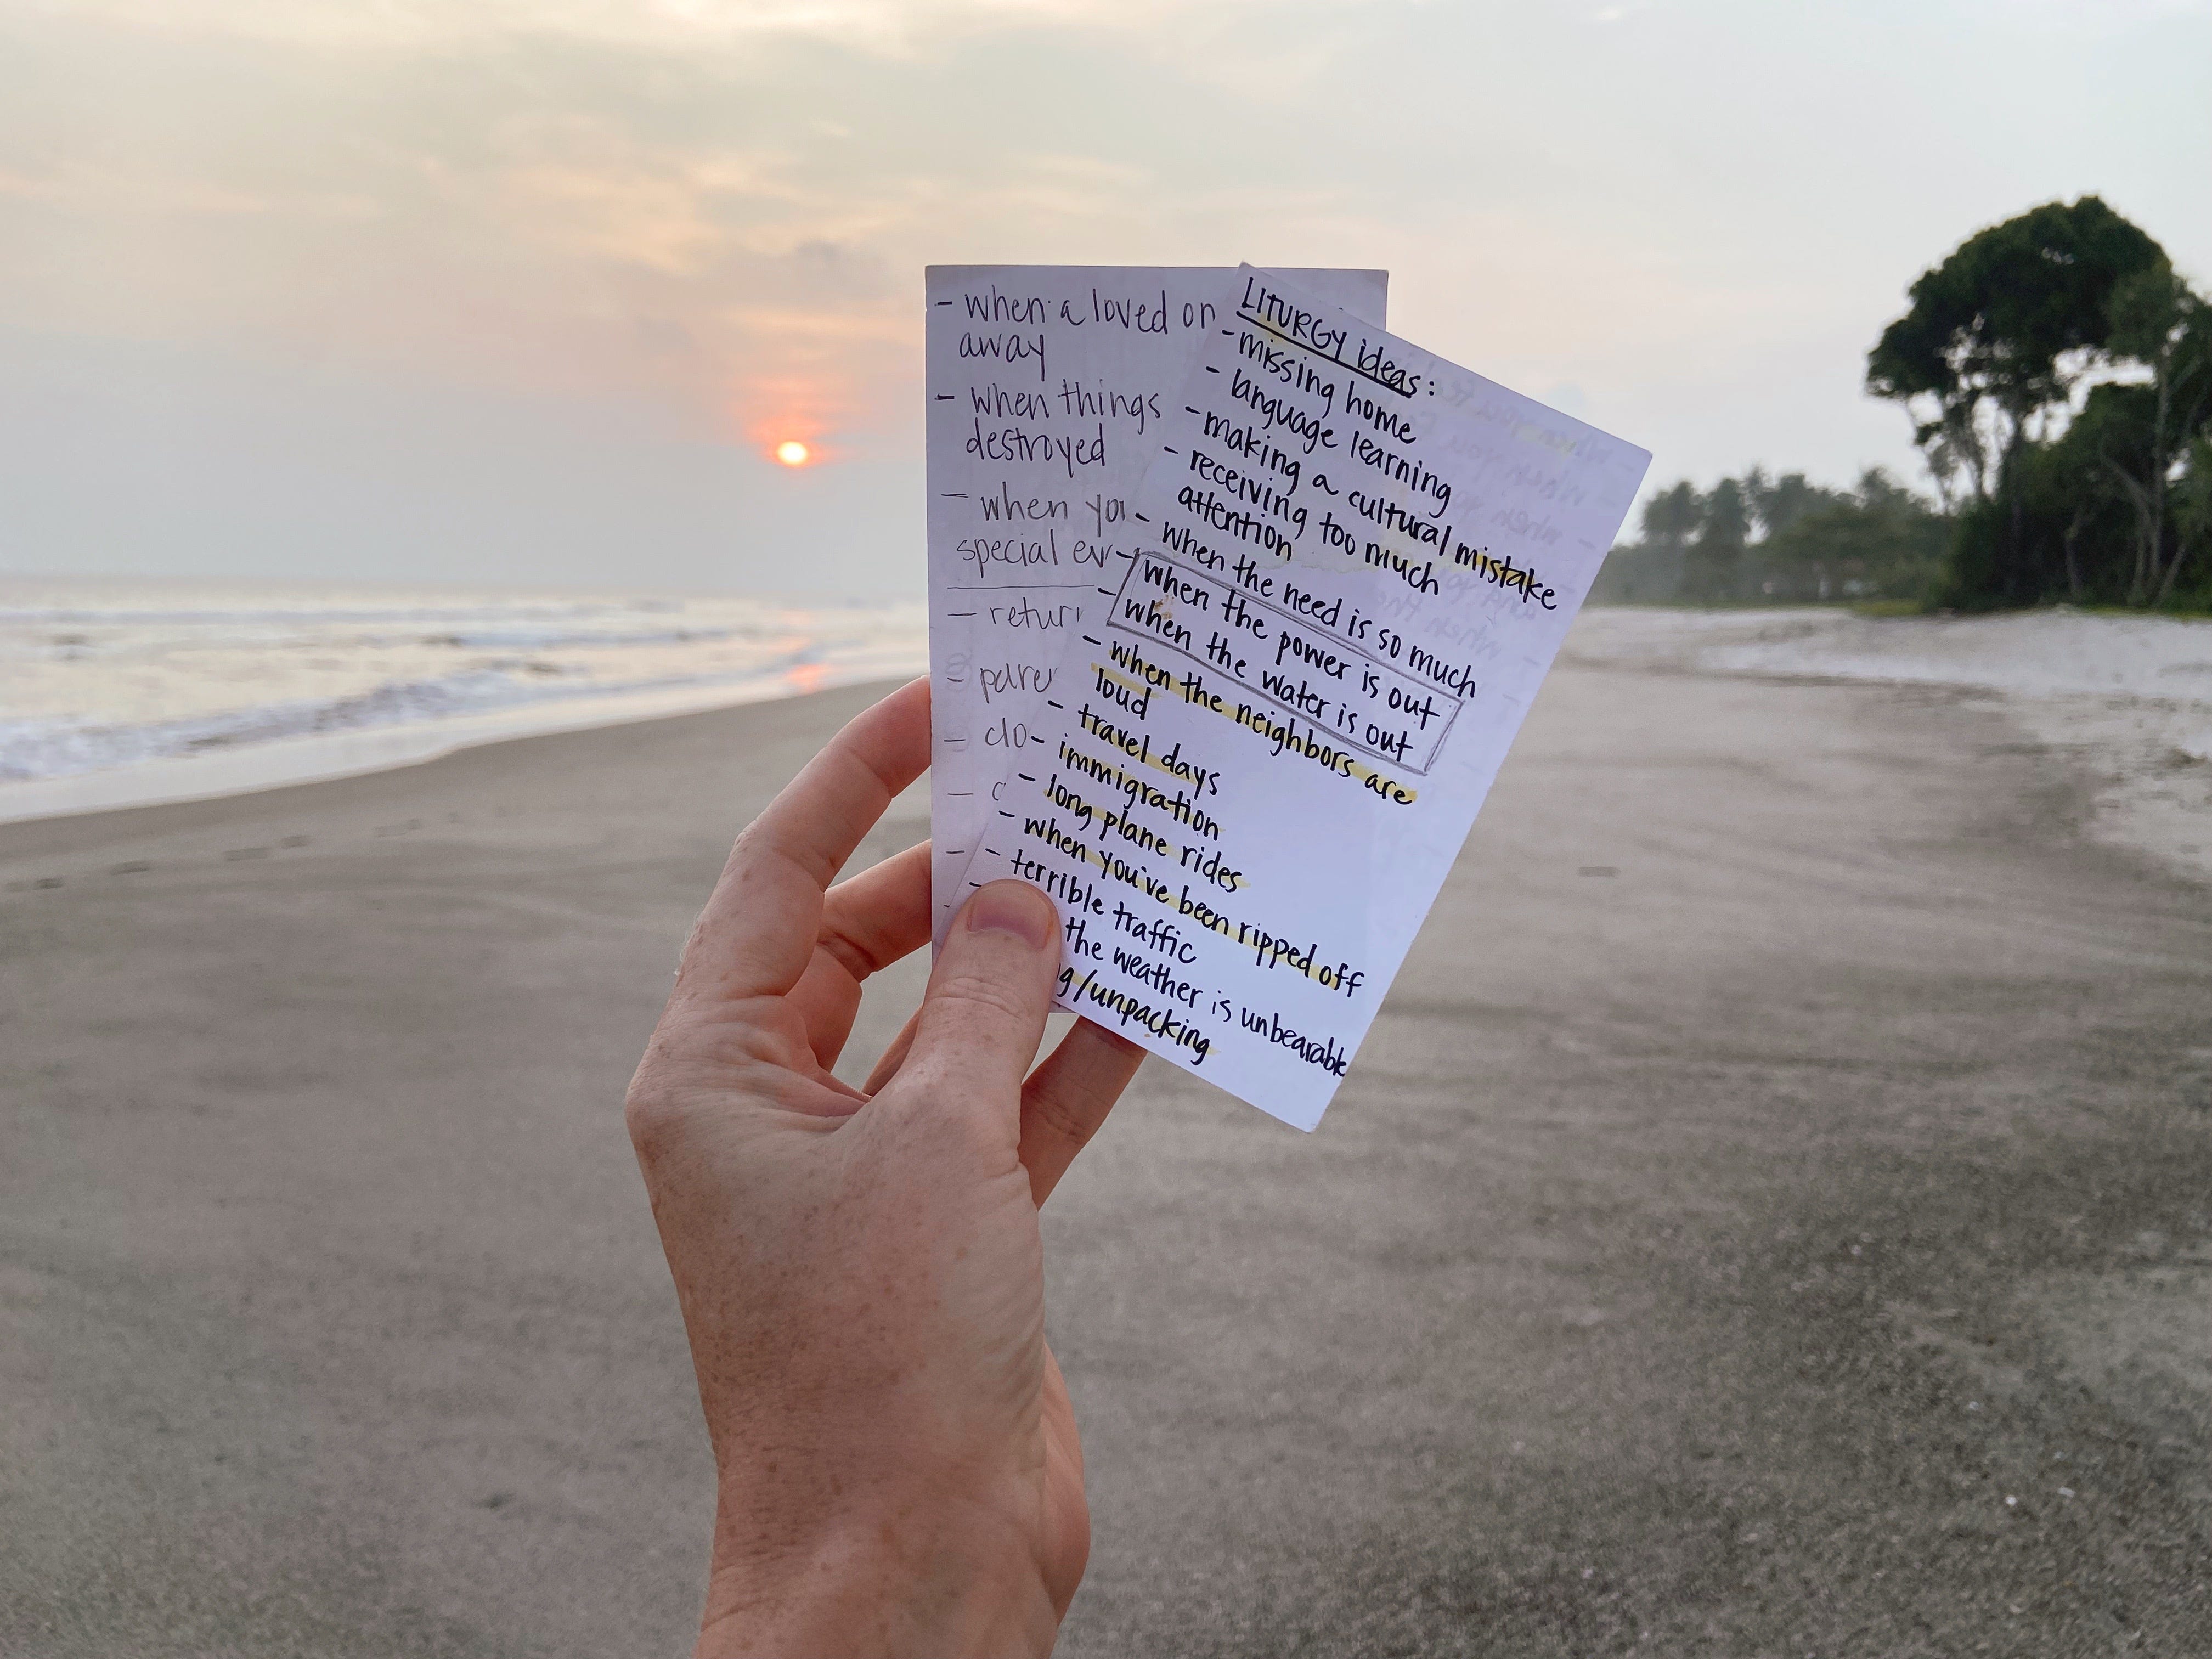 - when a loved
away
- when things
destroyed
- when
special
-
-
-
-
-
LITURGY ideas:
- missing home
- language learning
- making a cultural mistake
- receiving too much
attention
- when the need is so much
- when the power is out
- when the water is out
- when the neighbors are
loud
- travel days
- immigration
- long plane rides
- when you've been ripped off
- terrible traffic
- the weather is unbearable
/unpacking